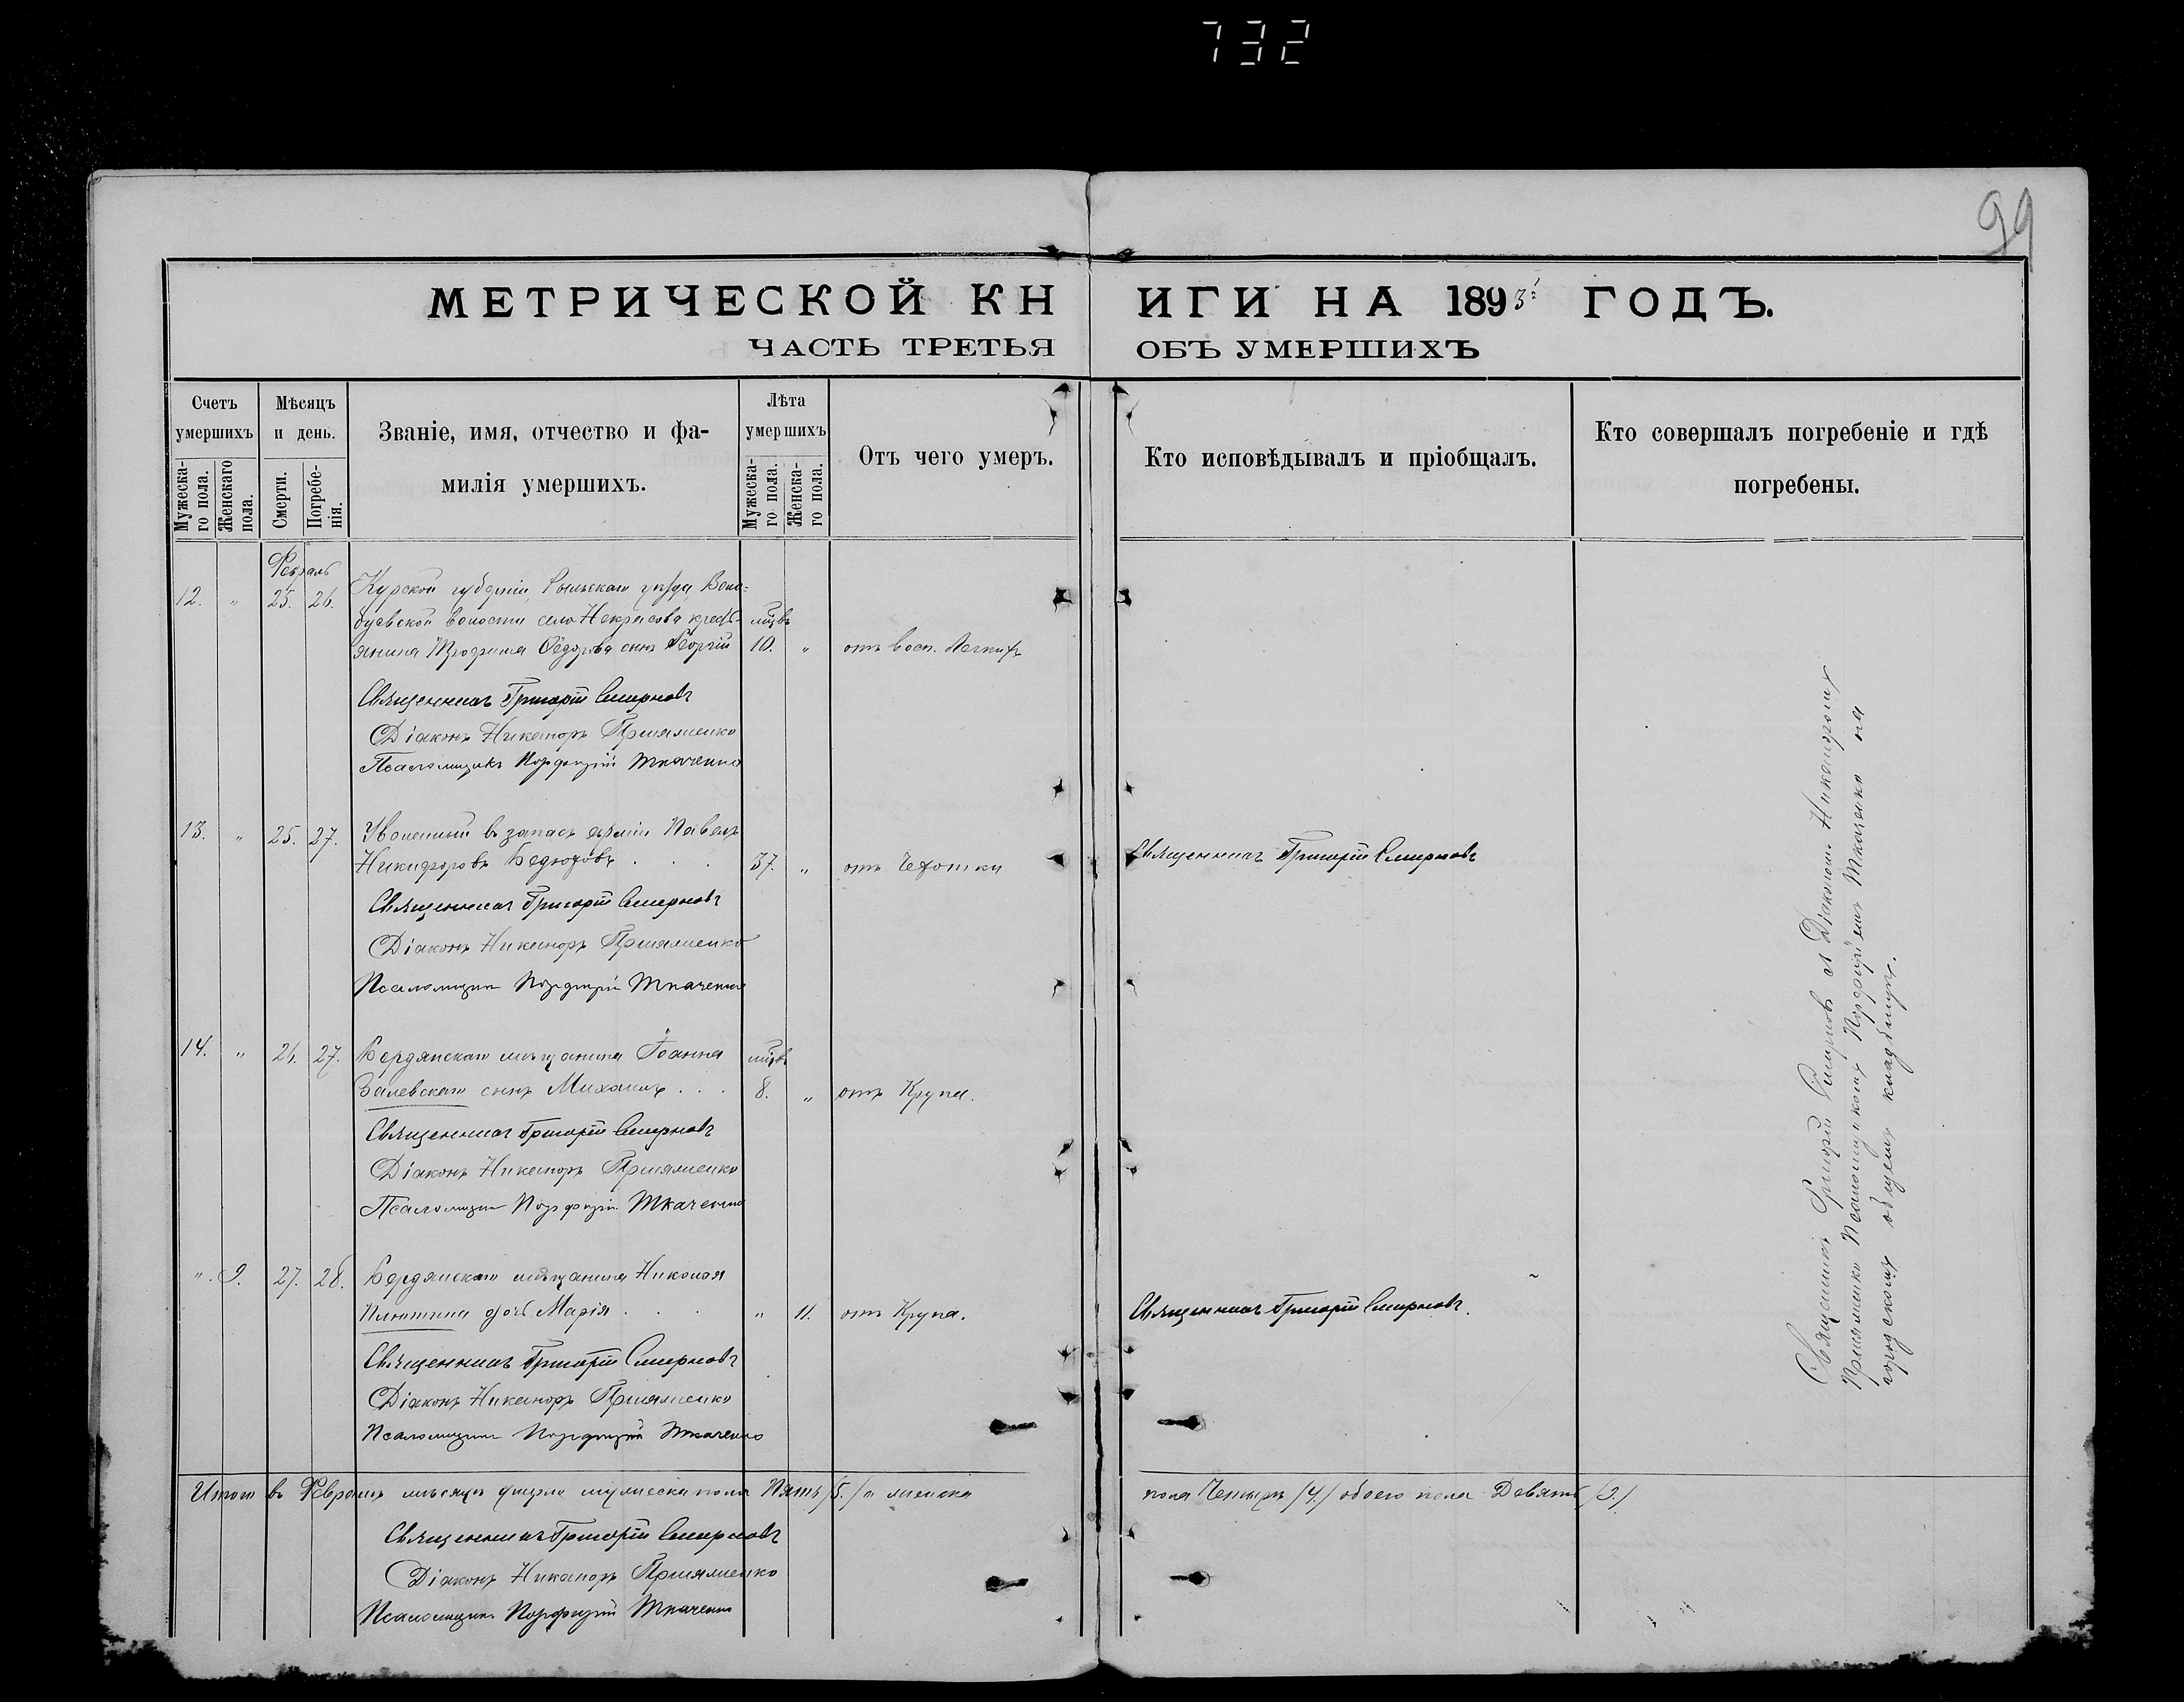 732
99
МЕТРИЧЕСКОЙ КНИГИ НА 1893й ГОДЪ.
ЧАСТЬ ТРЕТЬЯ ОБЪ УМЕРШИХЪ
Счетъ умершихъ
Мужескаго пола.
Женскаго пола.
Мѣсяцъ и день.
Смерти.
Погребенія.
Званіе, имя, отчество и фамилія умершихъ.
Лѣта умершихъ
Мужескаго пола.
Женскаго пола.
Отъ чего умеръ.
Кто исповѣдывалъ и пріобщалъ.
Кто совершалъ погребеніе и гдѣ погребены.
Февраль
12. " 25. 26. Курской губерніи, Рыльскаго уѣзда,
волости села Некрасова крестьянина Ѳедорова сынъ Георгій
мцвъ 10. " отъ восп. Легкихъ
Священникъ Григорій Смирновъ
Діаконъ Никаноръ
Псаломщикъ Порфирій Ткаченко
13. " 25. 27. Уволенный въ запасъ арміи Павелъ
Никифоровъ 37. " отъ Чахотки
Священникъ Григорій Смирновъ
Священникъ Григорій Смирновъ
Діаконъ Никаноръ
Псаломщикъ Порфирій Ткаченко
14. " 26. 27. Бердянскаго мѣщанина Іоанна
Залевскаго сынъ Михаилъ . . . мцвъ 8. " отъ Крупа.
Священникъ Григорій Смирновъ
Діаконъ Никаноръ
Псаломщикъ Порфирій Ткаченко
" 9. 27. 28. Бердянскаго мѣщанина Николая
дочь Марія . . . " 11. отъ Крупа.
Священникъ Григорій Смирновъ.
Священникъ Григорій Смирновъ
Діаконъ Никаноръ
Псаломщикъ Порфирій Ткаченко
Итого въ Февралѣ мѣсяцѣ умерло мужеска пола Пять /5./ а женска пола Четыре /4./ обоего пола Девять /9./
Священникъ Григорій Смирновъ
Діаконъ Никаноръ
Псаломщикъ Порфирій Ткаченко
Священникъ Григорій Смирновъ съ Діакономъ Никаноромъ
Псаломщикомъ Порфиріемъ Ткаченко на
городскомъ общемъ кладбищѣ.